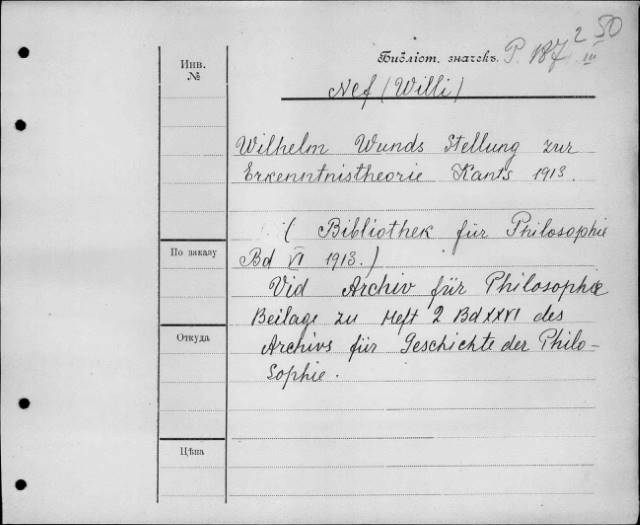 Инв.
№
Библіот. значекъ. P. 187 2 50
III
Nef (Willi)
Wilhelm Wunds Stellung zur
Erkenntnistheorie Kants 1913.
( Bibliothek für Philosophie
По заказу
Bd VI 1913.)
Vid Archiv für Philosophie
Beilage zu Heft 2 Bd XXVI des
Откуда
Archivs für Geschichte der Philo-
sophie.
Цѣна